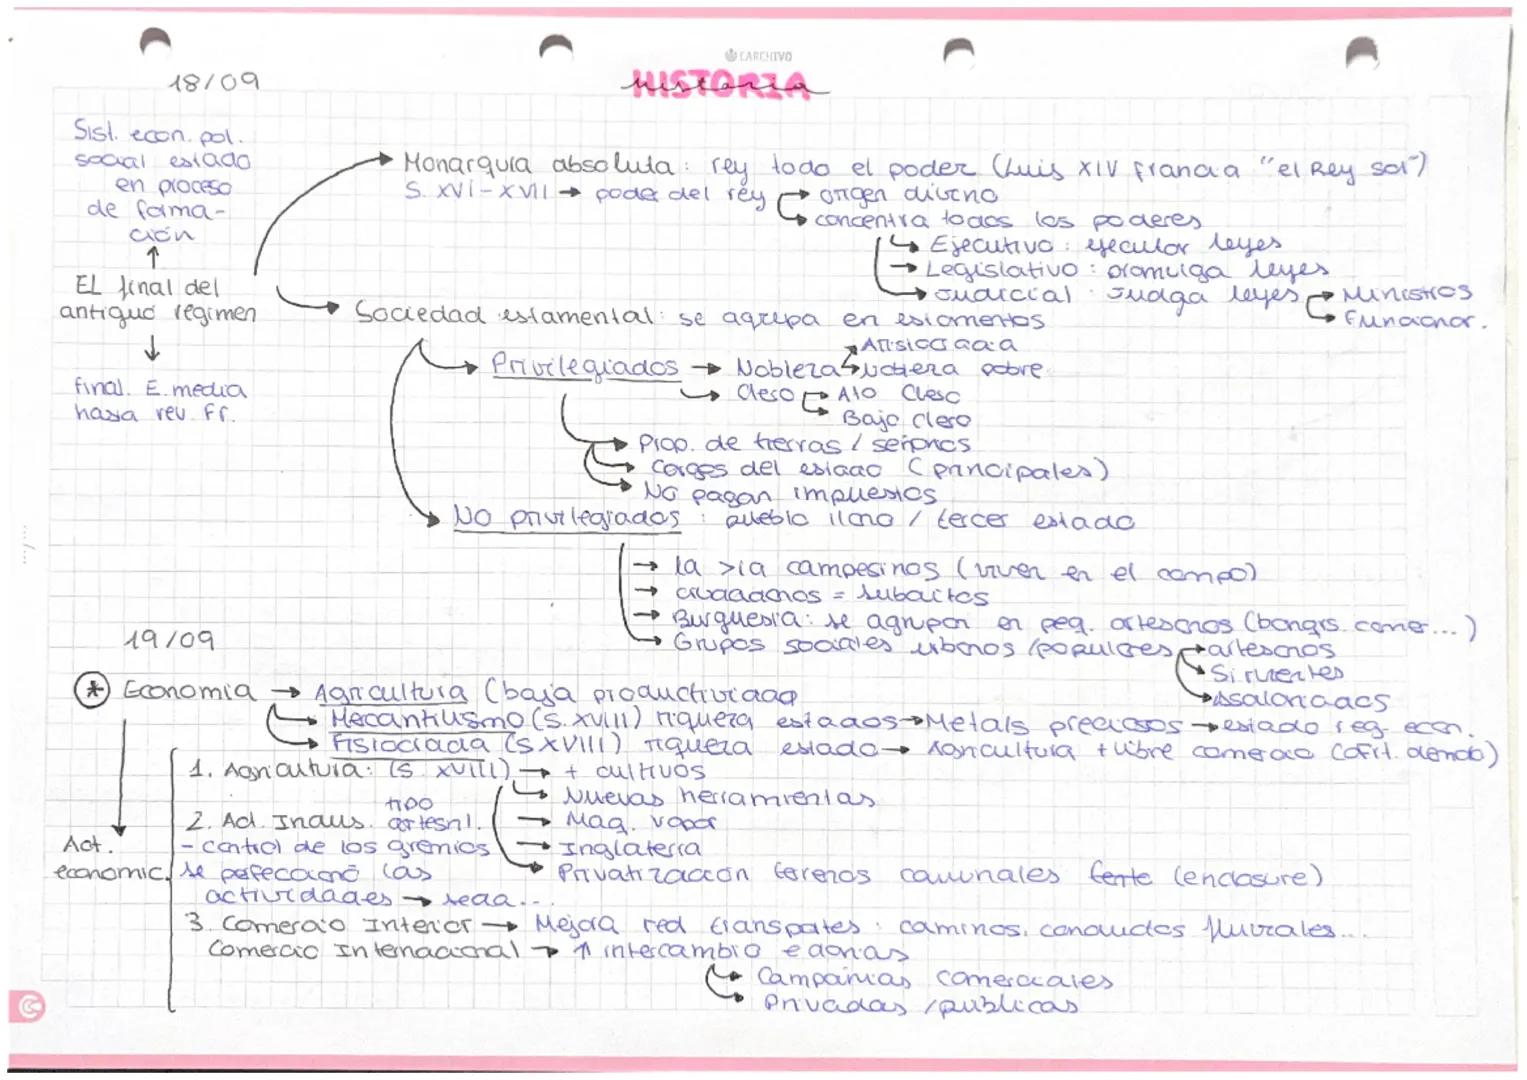 CARCHIVO
18/09
HISTORIA
historia
Sist. econ. pol.
social estado
en proceso
de forma-
ción
↑
EL final del
antiguo régimen
↓
final. E. media
hasta rev. Fr.
→ Monarquía absoluta: rey todo el poder (Luis XIV francia "el Rey sol")
S. XVI-XVII → poder del rey → origen divino
→ concentra todos los poderes
→ Ejecutivo: ejecutar leyes
→ Legislativo: promulga leyes
→ Judicial: Judga leyes → Ministros
→ Funcionar.
→ Sociedad estamental: se agrupa en estamentos
→ Privilegiados → Nobleza → Aristocracia
→ Nobleza pobre
→ Clero → Alto Clero
→ Bajo clero
→ Prop. de tierras / señores
→ Cargos del estado (principales)
→ No pagan impuestos
→ No privilegiados: pueblo llano / tercer estado
→ la >ia campesinos (viven en el campo)
→ ciudadanos = subditos
→ Burguesia: se agrupan en peq. artesanos (banqrs. comer...)
→ Grupos sociales urbanos /populares → artesanos
→ Sirvientes
→ Asalariados
19/09
* Economia → Agricultura (baja productividad
→ Mercantilismo (S. XVIII) riqueza estados → Metals preciosos → estado reg. econ.
→ Fisiocracia (S XVIII) riqueza estado → Agricultura + libre comercio (ofrt. demda)
Act.
economic.
1. Agricultura: (S. XVIII) → + cultivos
→ Nuevas herramientas
2. Act. Indus. tipo artesnl. → Maq. vapor
- control de los gremios → Inglaterra
se pefeccionó las → Privatización terenos comunales (enclosure)
actividades → seda...
3. Comercio Interior → Mejora red transpotes: caminos, conductos fluviales...
Comercio Internacional → ↑ intercambio
→ Campañias comerciales
→ Privadas /publicas